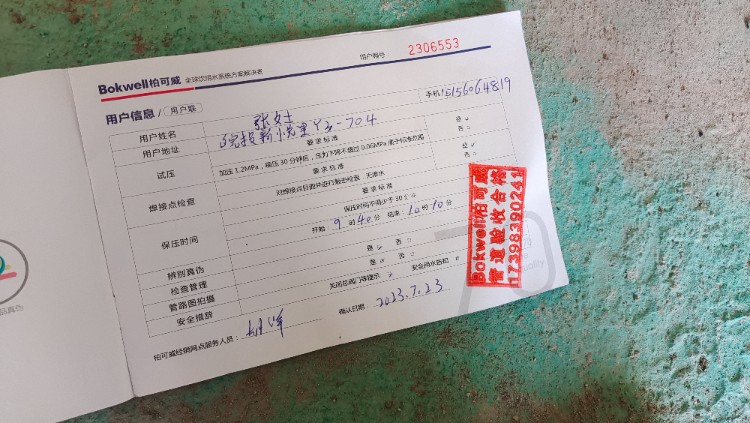 Bokwell柏可威 全球饮用水系统方案解决者
用户编号: 2306553
用户信息/用户联
用户姓名 张女士 手机: 15156064819
用户地址 皖投新悦里Y3-704
要求标准
试压 加压1.2MPa，稳压30分钟后，压力下降不超过0.06MPa 是 否
要求标准
焊接点检查 无渗水 是 否
要求标准
保压时间不得少于30分钟
保压时间 开始: 9时40分 结束: 10时10分
辨别真伪 是 否
检查管理 是 否
管路图拍摄
安全措辞 关闭总阀门等提示 安全用水告知
柏可威经销网点服务人员: 确认日期: 2023.7.23
Bokwell柏可威
管道验收合格
17398390241